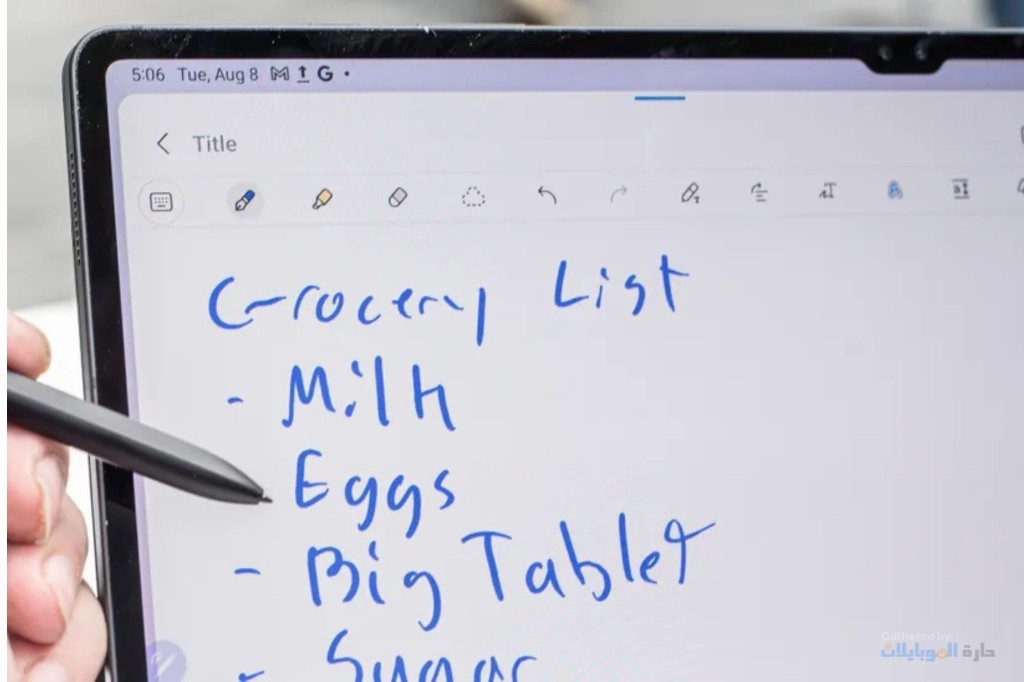 5:06 Tue, Aug 8 G
Title
Grocery List
- Milk
Eggs
- Big Tablet
- Sugar
Gathered by
حارة الموبايلات